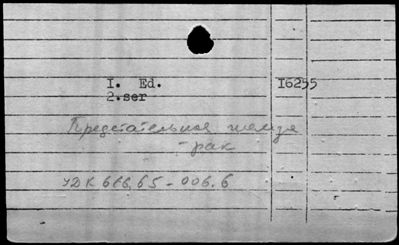 I. Ed. I6255
2.ser
Предстательная железа
- рак
УДК 616.65-006.6